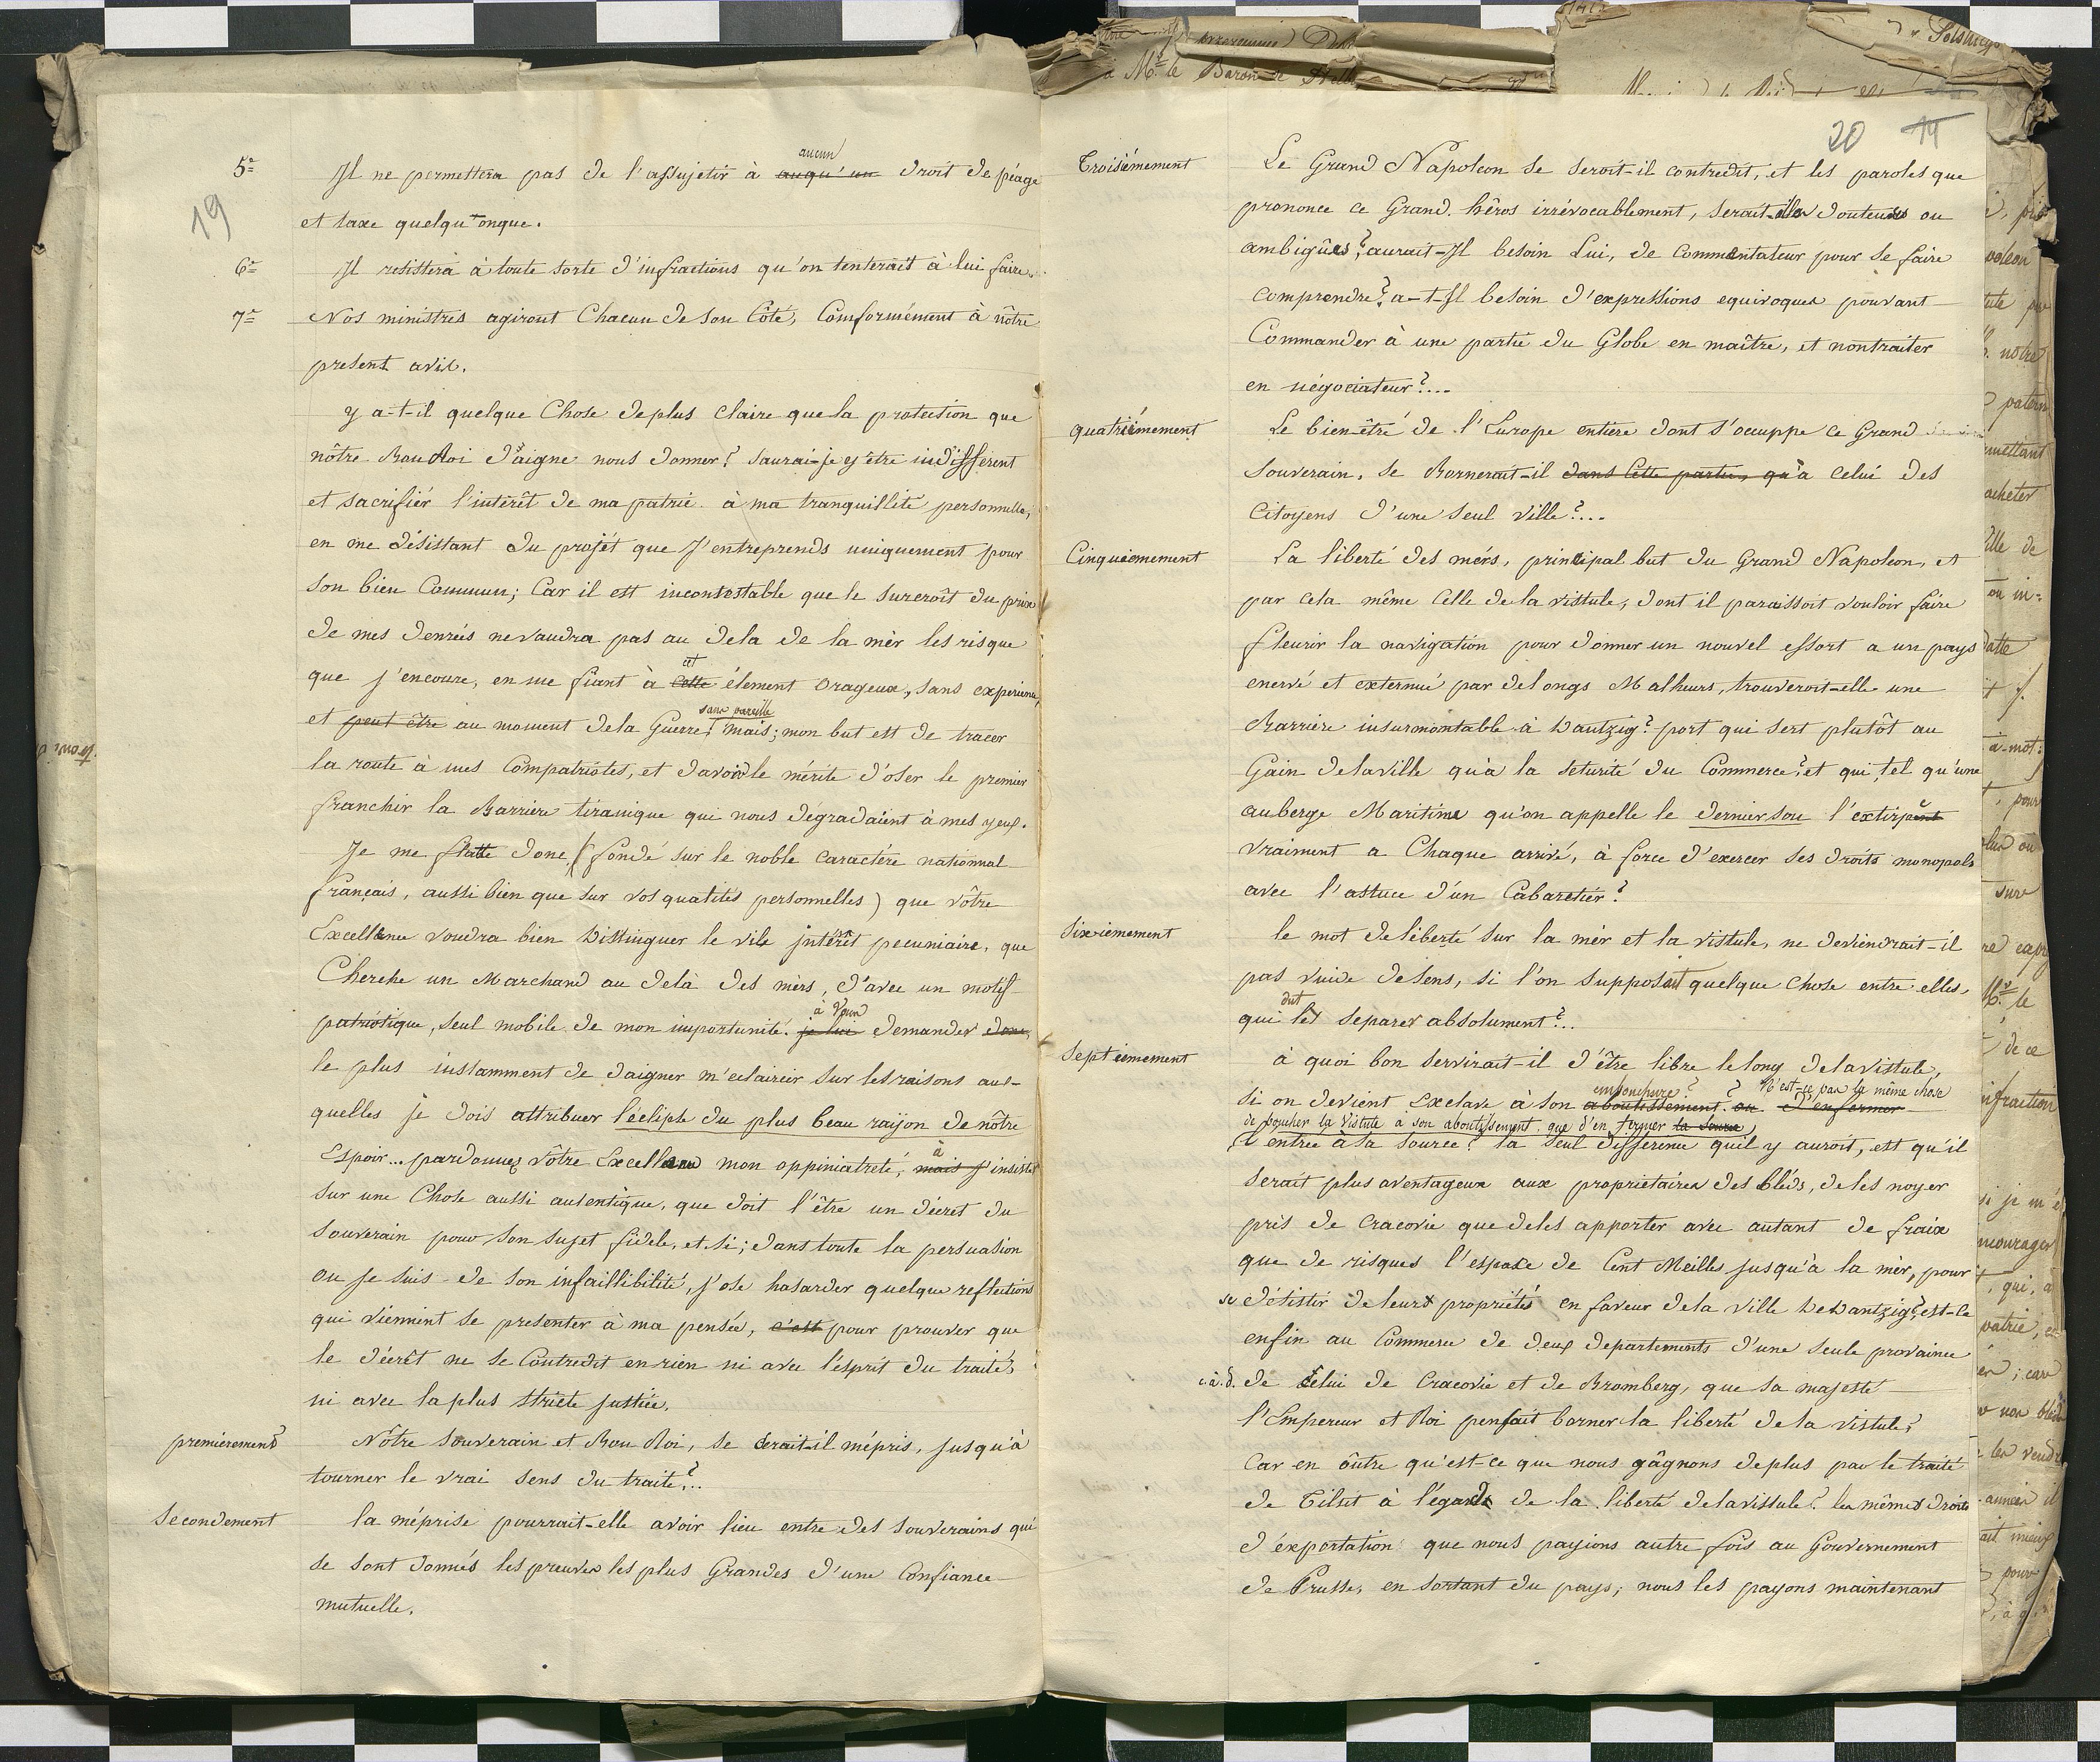 19
5° Il ne permettera pas de l'assujetir à aucun auqu'un droit de péage
et taxe quelqu'onque.
6° Il resistera à toute sorte d'infractions qu'on tenterait à lui faire.
7° Nos ministres agiront Chacun de son Côté, Comformément à nôtre
present avis.
y a-t-il quelque Chose de plus claire que la protection que
nôtre Bon Roi d'aigne nous donner? saurai-je y être indifférent
et sacrifiér l'intérêt de ma patrie à ma tranquillité personnélle,
en me désistant du projet que J'entreprends uniquement pour
son bien Commun; Car il est incontestable que le surcroît du prix
de mes denreés ne vaudra pas au dela de la mèr les risque
que j'encoure, en me fiant à cet cette élement Orageux, sans experience,
et peut être au moment de la Guerre sans pareille! mais; mon but est de tracer
la route à mes Compatriotes, et d'avoir le mérite d'oser le premier
franchir la Barriere tiranique qui nous dégradaient à mes yeux.
Je me flatte donc (fondé sur le noble caractère nationnal
français, aussi bien que sur vos qualités personnelles) que vôtre
Excellence voudra bien Distinguer le vile intérêt pecuniaire, que
Cherche un Marchand au delà des mèrs, d'avec un motif
patriotique, seul mobile de mon importunité. je lui à demander donc,
le plus instamment de daigner m'eclaircir sur les raisons aux-
quelles je dois attribuer l'éclipse du plus beau raijon de nôtre
Espoir... pardonnez vôtre Excellence mon oppiniatreté, à mais j'insister
sur une Chose aussi autentique, que doit l'être un décret du
souverain pour son sujet fidele, et si; dans toute la persuasion
ou je suis de son infaillibilité, j'ose hasarder quelque reflections
qui viennint se presenter à ma pensée, c'est pour prouver que
le décrêt ne se Contredit en rien ni avec l'ésprit du traité,
ni avec la plus stricte justice.
premièrement Nôtre souverain et Bon Roi, se serait-il mépris, jusqu'à
tourner le vrai sens du traité?..
Secondement la méprise pourrait-elle avoir lieu entre des souverains qui
se sont donnés les preuves les plus Grandes d'une Confiance
mutuelle.
20 14
Troisièmement Le Grand Napoleon se seroit-il contredit, et les paroles que
prononce ce Grand héros irrévocablement, serait-elles douteuses ou
ambigûes? aurait-Il besoin Lui, de commentateur pour se faire
comprendre? a-t-Il besoin d'expressions equivoques pouvant
Commander à une partie du Globe en maître, et non traiter
en négociateur?...
quatrièmement Le bien-être de l'Europe entière dont s'occuppe ce Grand
souverain, se Bornerait-il dans Cette partie, qu'à celui des
Citoyens d'une seul ville?...
Cinquièmement La liberté des mérs, principal but du Grand Napoleon, et
par cela même Celle de la vistule, dont il paraissoit vouloir faire
fleurir la navigation pour donner un nouvel essort a un pays
enervé et extermué par de longs Malheurs, trouveroit-elle une
Barriere insurmontable à Dantzig? port qui sert plutôt au
Gain de la ville qu'à la seturité du Commerce? et qui, tel qu'une
auberge Maritime qu'on appelle le dernier sou l'extirpent
vraiment a Chaque arrivé, à force d'exercer ses droits monopols
avec l'astuce d'un Cabaretiér?
Sixièmement le mot de liberté sur la mèr et la vistule, ne deviendrait-il
pas vuide de sens, si l'on supposait quelque chose entre elles,
qui dût les separer absolument?..
Septièmement à quoi bon servirait-il d'être libre le long de la vistule,
si on devient Exclave à son embouchure? aboutissement. ou d'enfermer ? N'est-ce pas la même chose
de boucher la Vistule à son aboutissement que d'en fermer la source
l'entrée à sa source? la seul differenne quil y auroit, est qu'il
serait plus aventageux aux propriétaires des bléds, de les noyer
près de Cracovie que de les apporter avec autant de fraix
que de risques l'espace de Cent Meilles jusqu'à la mèr, pour
se désistir de leurs propriétés en faveur de la ville de Dantzig? est-ce
enfin au Commerce de deux departements d'une seule provaince
c.à.d. de celui de Cracovie et de Bromberg, que sa majesté
l'Empereur et Roi pensait borner la liberté de la vistule?
Car en oûtre qu'est-ce que nous gâgnons de plus par le traité
de Tilsit à l'égards de la liberté de la vistule? les mêmes droits
d'éxportation que nous payions autre fois au Gouvernement
de Prusse, en sortant du pays, nous les payons maintenant